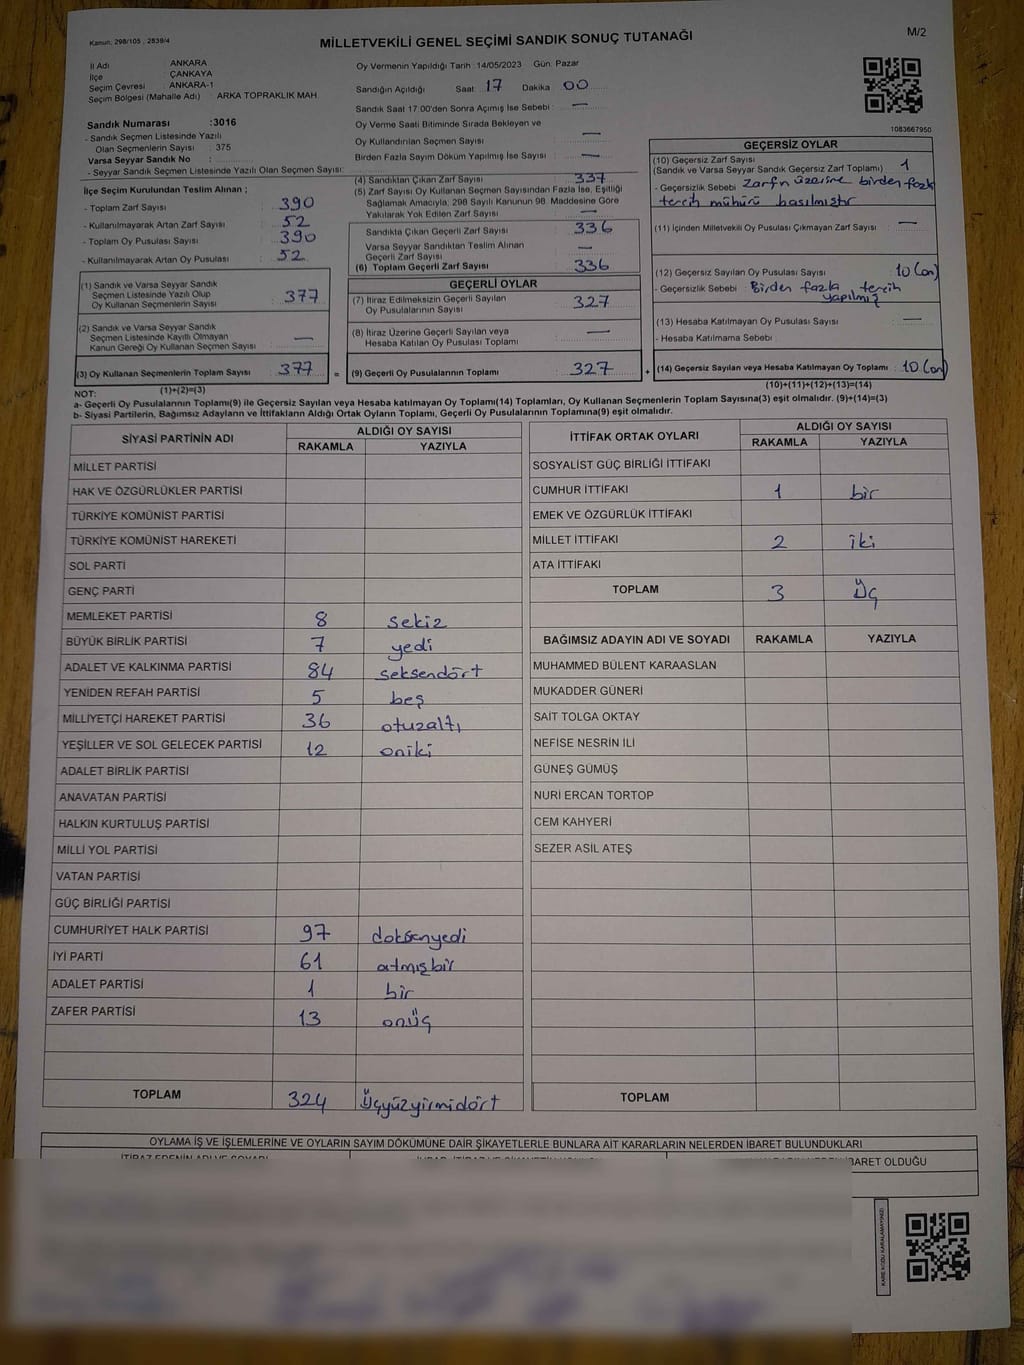 Kanun, 298/105 , 2839/4
MİLLETVEKİLİ GENEL SEÇİMİ SANDIK SONUÇ TUTANAĞI
M/2
İl Adı ANKARA
İlçe ÇANKAYA
Seçim Çevresi ANKARA-1
Seçim Bölgesi (Mahalle Adı) ARKA TOPRAKLIK MAH.
Oy Vermenin Yapıldığı Tarih : 14/05/2023 Gün. Pazar
Sandığın Açıldığı Saat : 17 Dakika 00
Sandık Saat 17:00'den Sonra Açımış İse Sebebi : —
Oy Verme Saati Bitiminde Sırada Bekleyen ve
Oy Kullandırılan Seçmen Sayısı —
Birden Fazla Sayım Döküm Yapılmış İse Sayısı : —
1083667950
Sandık Numarası :3016
- Sandık Seçmen Listesinde Yazılı
Olan Seçmenlerin Sayısı : 375
Varsa Seyyar Sandık No :
- Seyyar Sandık Seçmen Listesinde Yazılı Olan Seçmen Sayısı:
İlçe Seçim Kurulundan Teslim Alınan ;
- Toplam Zarf Sayısı : 390
- Kullanılmayarak Artan Zarf Sayısı : 52
- Toplam Oy Pusulası Sayısı : 390
- Kullanılmayarak Artan Oy Pusulası : 52
(1) Sandık ve Varsa Seyyar Sandık
Seçmen Listesinde Yazılı Olup
Oy Kullanan Seçmenlerin Sayısı : 377
(2) Sandık ve Varsa Seyyar Sandık
Seçmen Listesinde Kayıtlı Olmayan
Kanun Gereği Oy Kullanan Seçmen Sayısı : —
(3) Oy Kullanan Seçmenlerin Toplam Sayısı : 377 =
(1)+(2)=(3)
(4) Sandıktan Çıkan Zarf Sayısı : 337
(5) Zarf Sayısı Oy Kullanan Seçmen Sayısından Fazla İse, Eşitliği
Sağlamak Amacıyla, 298 Sayılı Kanunun 98. Maddesine Göre
Yakılarak Yok Edilen Zarf Sayısı : —
Sandıkta Çıkan Geçerli Zarf Sayısı : 336
Varsa Seyyar Sandıktan Teslim Alınan
Geçerli Zarf Sayısı : —
(6) Toplam Geçerli Zarf Sayısı : 336
GEÇERLİ OYLAR
(7) İtiraz Edilmeksizin Geçerli Sayılan
Oy Pusulalarının Sayısı : 327
(8) İtiraz Üzerine Geçerli Sayılan veya
Hesaba Katılan Oy Pusulası Toplamı : —
(9) Geçerli Oy Pusulalarının Toplamı : 327 +
GEÇERSİZ OYLAR
(10) Geçersiz Zarf Sayısı
(Sandık ve Varsa Seyyar Sandık Geçersiz Zarf Toplamı) : 1
- Geçersizlik Sebebi : Zarfın üzerine birden fazla
tercih mühürü basılmıştır
(11) İçinden Milletvekili Oy Pusulası Çıkmayan Zarf Sayısı : —
(12) Geçersiz Sayılan Oy Pusulası Sayısı : 10 (on)
- Geçersizlik Sebebi : Birden fazla tercih
yapılmış
(13) Hesaba Katılmayan Oy Pusulası Sayısı : —
- Hesaba Katılmama Sebebi :
(14) Geçersiz Sayılan veya Hesaba Katılmayan Oy Toplamı : 10 (on)
(10)+(11)+(12)+(13)=(14)
NOT:
a- Geçerli Oy Pusulalarının Toplamı(9) ile Geçersiz Sayılan veya Hesaba katılmayan Oy Toplamı(14) Toplamları, Oy Kullanan Seçmenlerin Toplam Sayısına(3) eşit olmalıdır. (9)+(14)=(3)
b- Siyasi Partilerin, Bağımsız Adayların ve İttifakların Aldığı Ortak Oyların Toplamı, Geçerli Oy Pusulalarının Toplamına(9) eşit olmalıdır.
SİYASİ PARTİNİN ADI ALDIĞI OY SAYISI
RAKAMLA YAZIYLA
MİLLET PARTİSİ
HAK VE ÖZGÜRLÜKLER PARTİSİ
TÜRKİYE KOMÜNİST PARTİSİ
TÜRKİYE KOMÜNİST HAREKETİ
SOL PARTİ
GENÇ PARTİ
MEMLEKET PARTİSİ 8 sekiz
BÜYÜK BİRLİK PARTİSİ 7 yedi
ADALET VE KALKINMA PARTİSİ 84 seksendört
YENİDEN REFAH PARTİSİ 5 beş
MİLLİYETÇİ HAREKET PARTİSİ 36 otuzaltı
YEŞİLLER VE SOL GELECEK PARTİSİ 12 oniki
ADALET BİRLİK PARTİSİ
ANAVATAN PARTİSİ
HALKIN KURTULUŞ PARTİSİ
MİLLİ YOL PARTİSİ
VATAN PARTİSİ
GÜÇ BİRLİĞİ PARTİSİ
CUMHURİYET HALK PARTİSİ 97 doksanyedi
İYİ PARTİ 61 atmışbir
ADALET PARTİSİ 1 bir
ZAFER PARTİSİ 13 onüç
TOPLAM 324 Üçyüzyirmidört
İTTİFAK ORTAK OYLARI ALDIĞI OY SAYISI
RAKAMLA YAZIYLA
SOSYALİST GÜÇ BİRLİĞİ İTTİFAKI
CUMHUR İTTİFAKI 1 bir
EMEK VE ÖZGÜRLÜK İTTİFAKI
MİLLET İTTİFAKI 2 iki
ATA İTTİFAKI
TOPLAM 3 Üç
BAĞIMSIZ ADAYIN ADI VE SOYADI RAKAMLA YAZIYLA
MUHAMMED BÜLENT KARAASLAN
MUKADDER GÜNERİ
SAİT TOLGA OKTAY
NEFİSE NESRİN İLİ
GÜNEŞ GÜMÜŞ
NURİ ERCAN TORTOP
CEM KAHYERİ
SEZER ASİL ATEŞ
TOPLAM
OYLAMA İŞ VE İŞLEMLERİNE VE OYLARIN SAYIM DÖKÜMÜNE DAİR ŞİKAYETLERLE BUNLARA AİT KARARLARIN NELERDEN İBARET BULUNDUKLARI
İTİRAZ EDENİN ADI VE SOYADI
İBARET OLDUĞU
KARE KODU KARALAMAYINIZ!